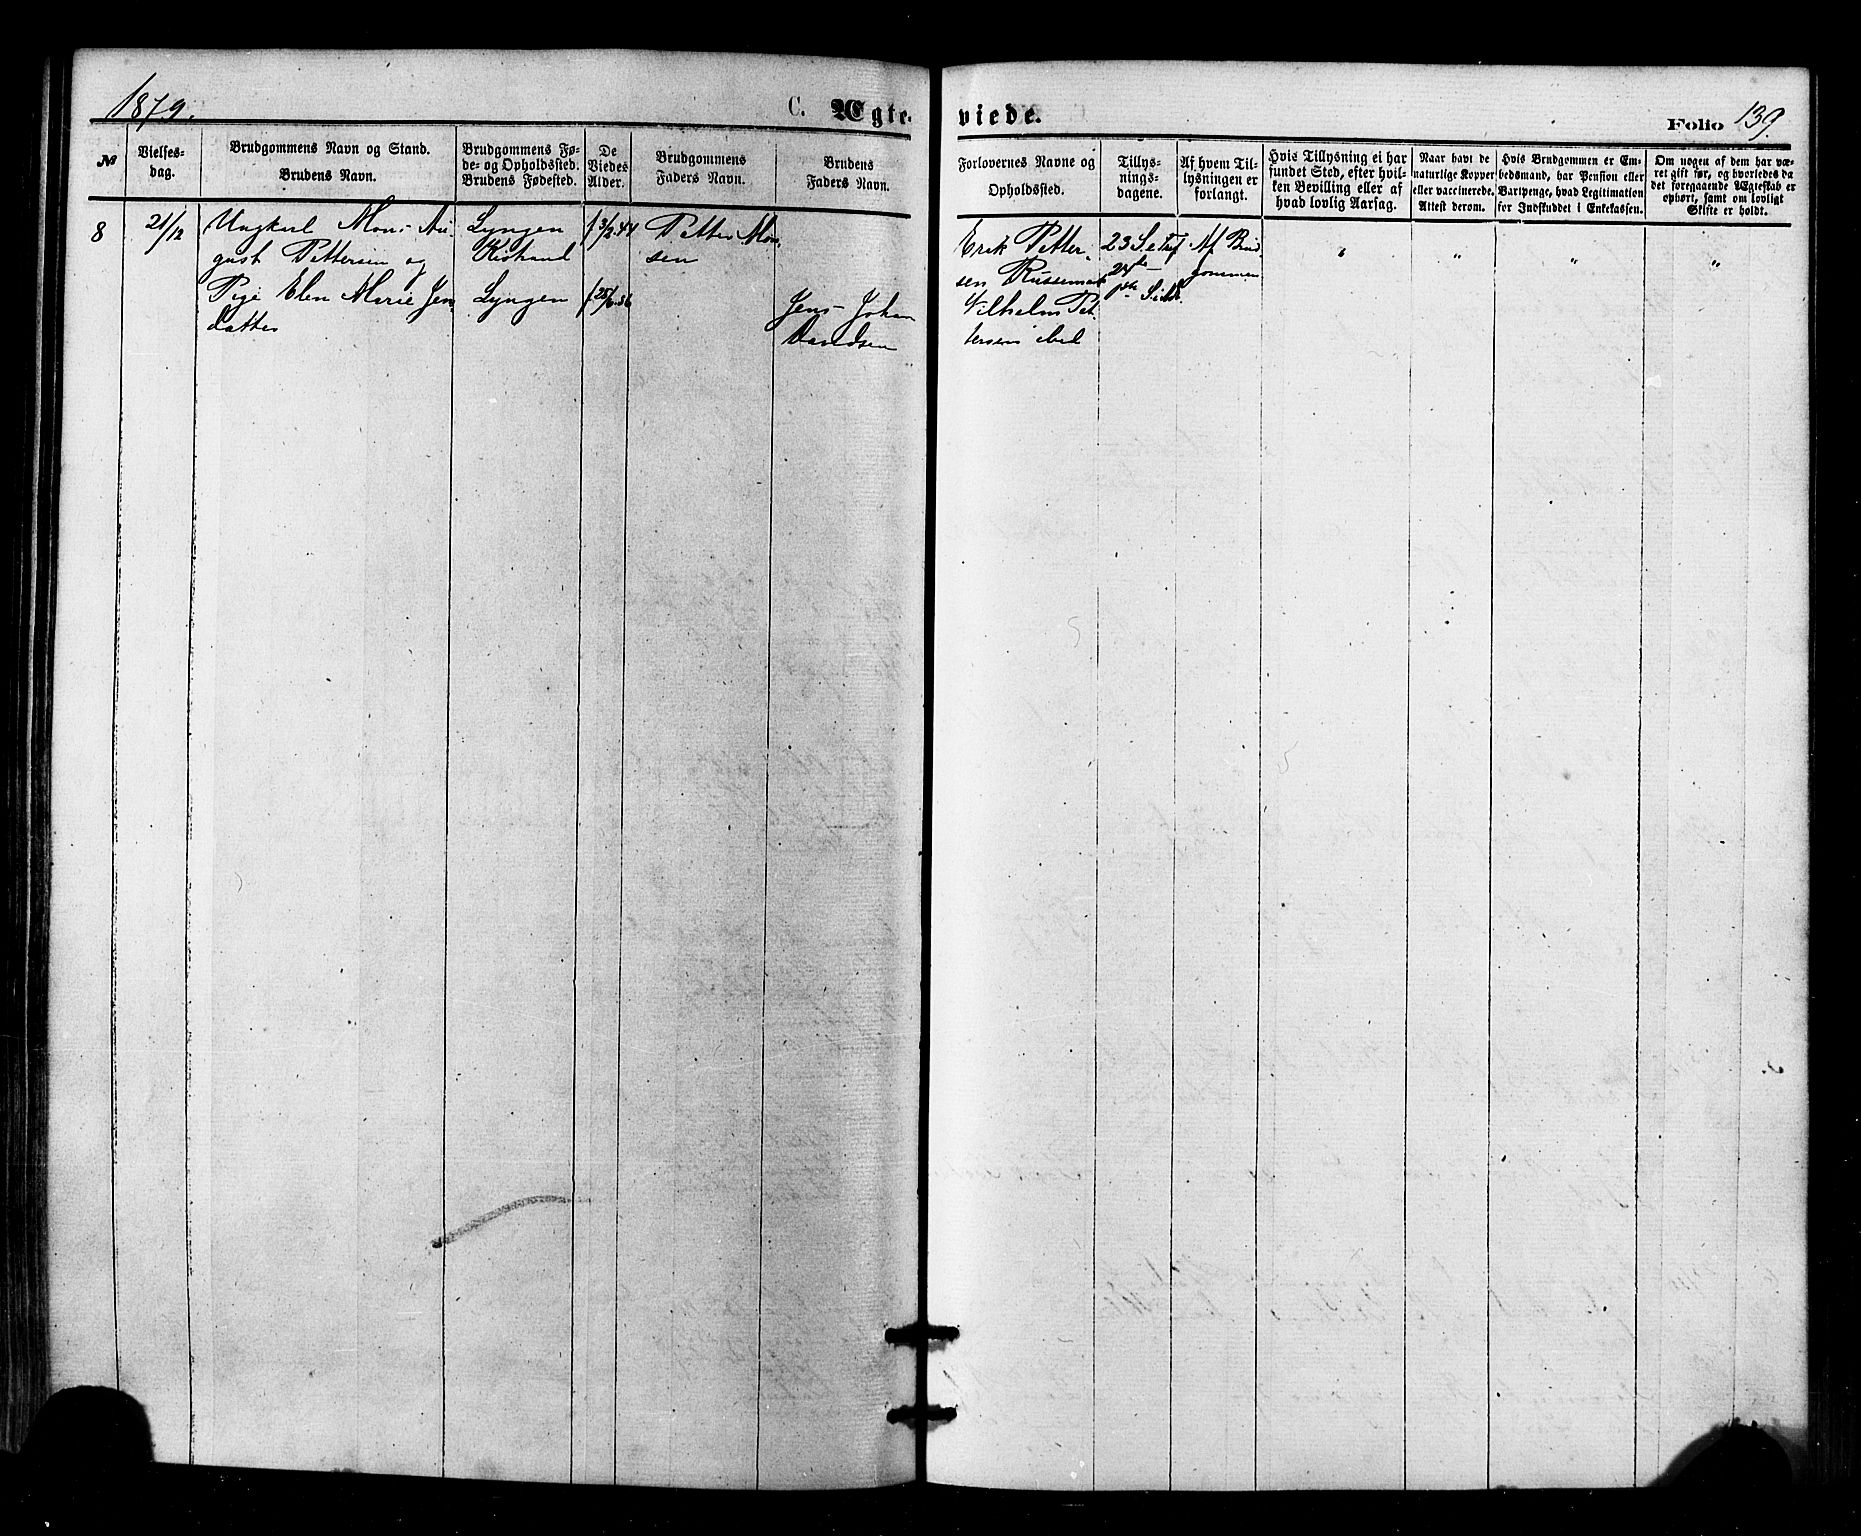 1879.
C. Ægte-
viede.
Folio 139.
№
Vielses-
dag.
Brudgommens Navn og Stand.
Brudens Navn.
Brudgommens Fø-
de- og Opholdssted.
Brudens Fødested.
De
Viedes
Alder.
Brudgommens
Faders Navn.
Brudens
Faders Navn.
Forlovernes Navne og
Opholdssted.
Tillys-
nings-
dagene.
Af hvem Til-
lysningen er
forlangt.
Hvis Tillysning ei har
fundet Sted, efter hvil-
ken Bevilling eller af
hvad lovlig Aarsag.
Naar havt de
naturlige Kopper
eller vaccinerede.
Attest derom.
Hvis Brudgommen er Em-
bedsmand, har Pension eller
Vartpenge, hvad Legitimation
for Indskuddet i Enkekassen.
Om nogen af dem har væ-
ret gift før, og hvorledes da
det foregaaende Ægteskab er
ophørt, samt om lovligt
Skifte er holdt.
8
21/12
Ungkarl Mons Au-
gust Pettersen og
Pige Elen Marie Jens
datter
Lyngen
Kistrand
Lyngen
f 3/2.44
f. 25/6.56
Petter Mon-
sen
Jens Johan
Davidsen
Erik Petter-
sen Russemark
Vilhelm Pet
tersen ibid
23 S. e Tref
24de
Af Brud
gommen
"
"
"
"